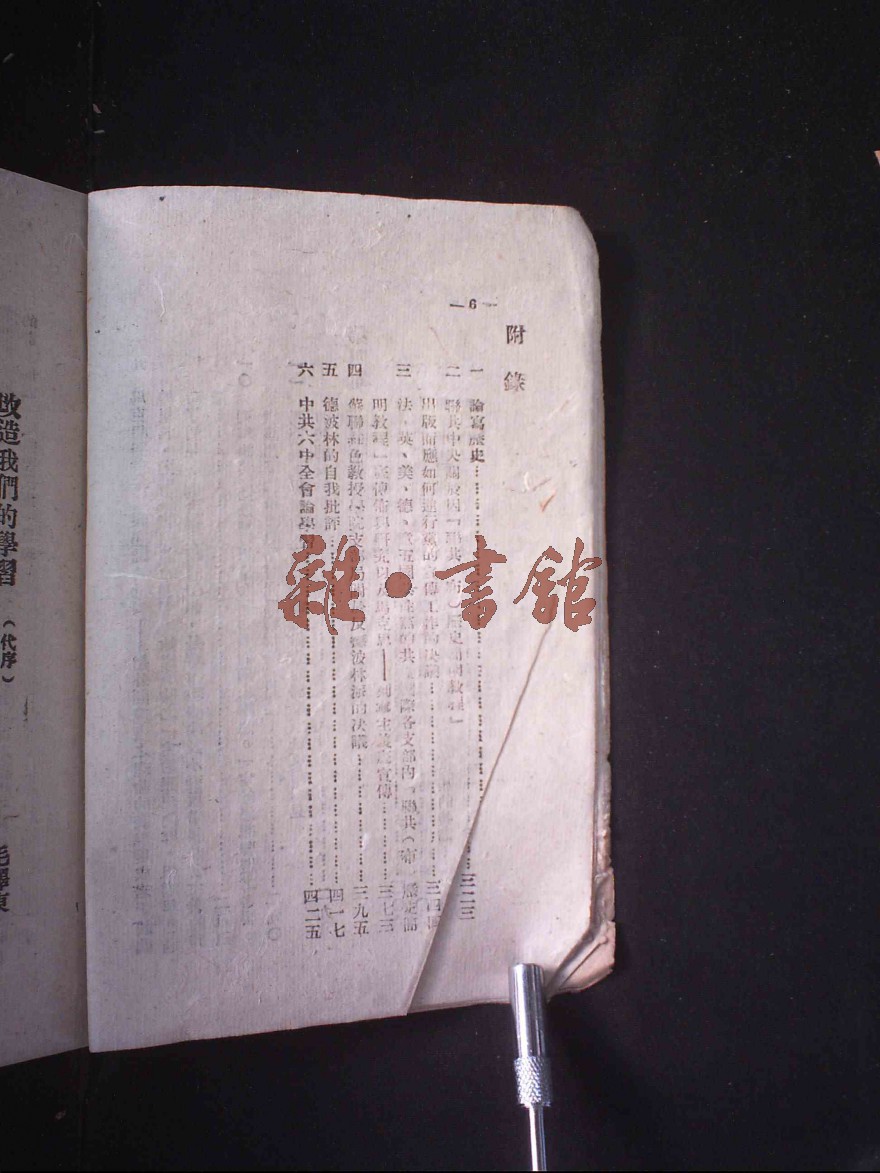 —6—
附錄
一 論寫歷史……三二三
二 聯共中央關於因「聯共(布)歷史簡明教程」
出版而應如何進行黨的宣傳工作的決議……三四
三 法、英、美、德、五國共產黨的共 國際各支部內「聯共(布)歷史簡
明教程」宣傳 研究以及馬克思——列寧主義底宣傳……三七三
四 蘇聯紅色教授學院支部 波林派的決議……三九五
五 德波林的自我批評……四一七
六 中共六中全會論學習……四二五
改造我們的學習 (代序)
毛澤東
雜·書館